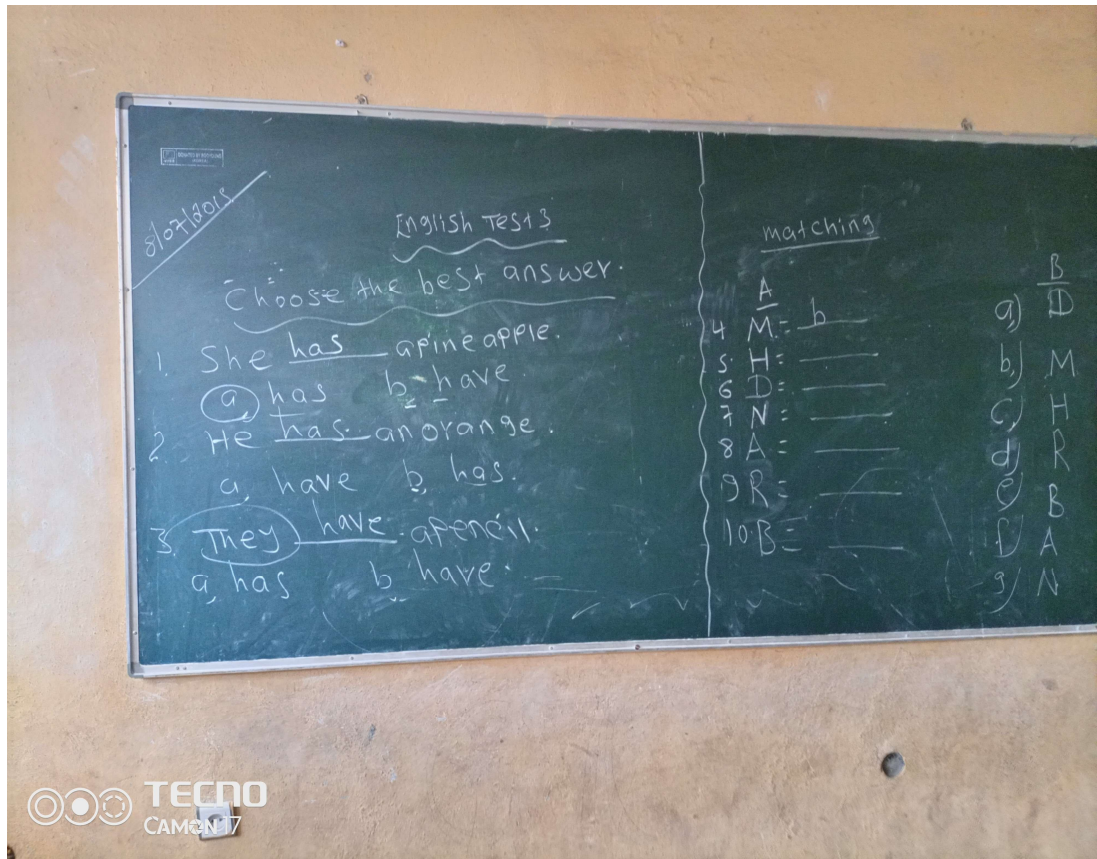 8/07/2015
English Test 3
Choose the best answer.
1. She has apineapple.
a, has b, have.
2. He has anorange.
a, have b, has.
3. They have apencil.
a, has b, have.
matching
A
4 M = b
5. H =
6 D =
7 N =
8 A =
9 R =
10. B =
B
a) D
b) M
c) H
d) R
e) B
f) A
g) N
TECNO
CAMON 17